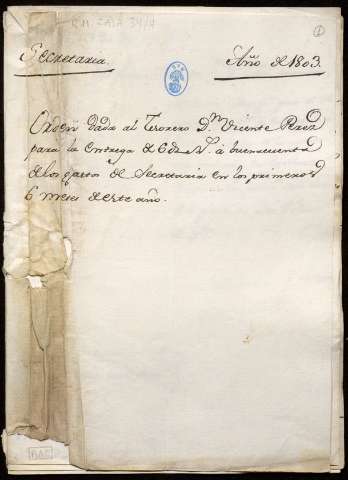 R.M. CAJA 34/4
1
Secretaria. Año de 1803.
Orden dada al Tesorero Dn. Vicente Perez
para la entrega de 6 Rs. Vn. à buena cuenta
de los gastos de Secretaria en los primeros
6 meses de este año.